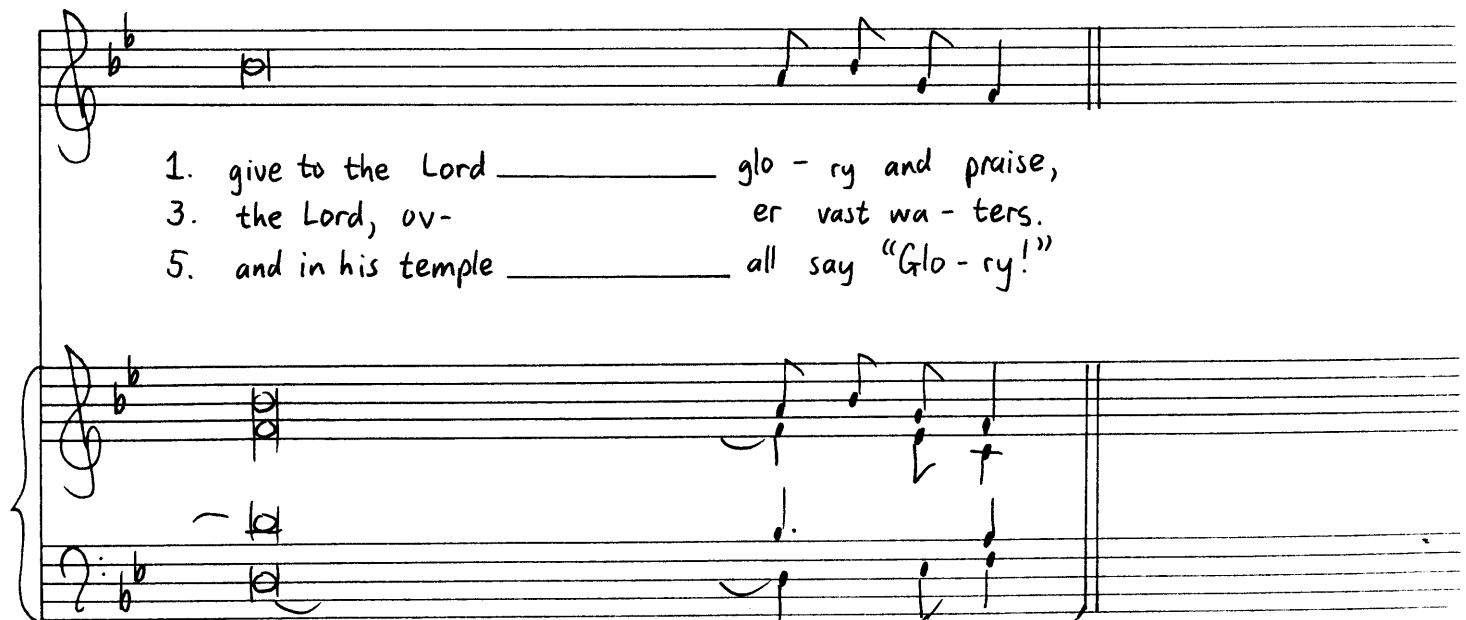 1. give to the Lord ____________ glo - ry and praise,
3. the Lord, ov- er vast wa - ters.
5. and in his temple ____________ all say “Glo - ry!”